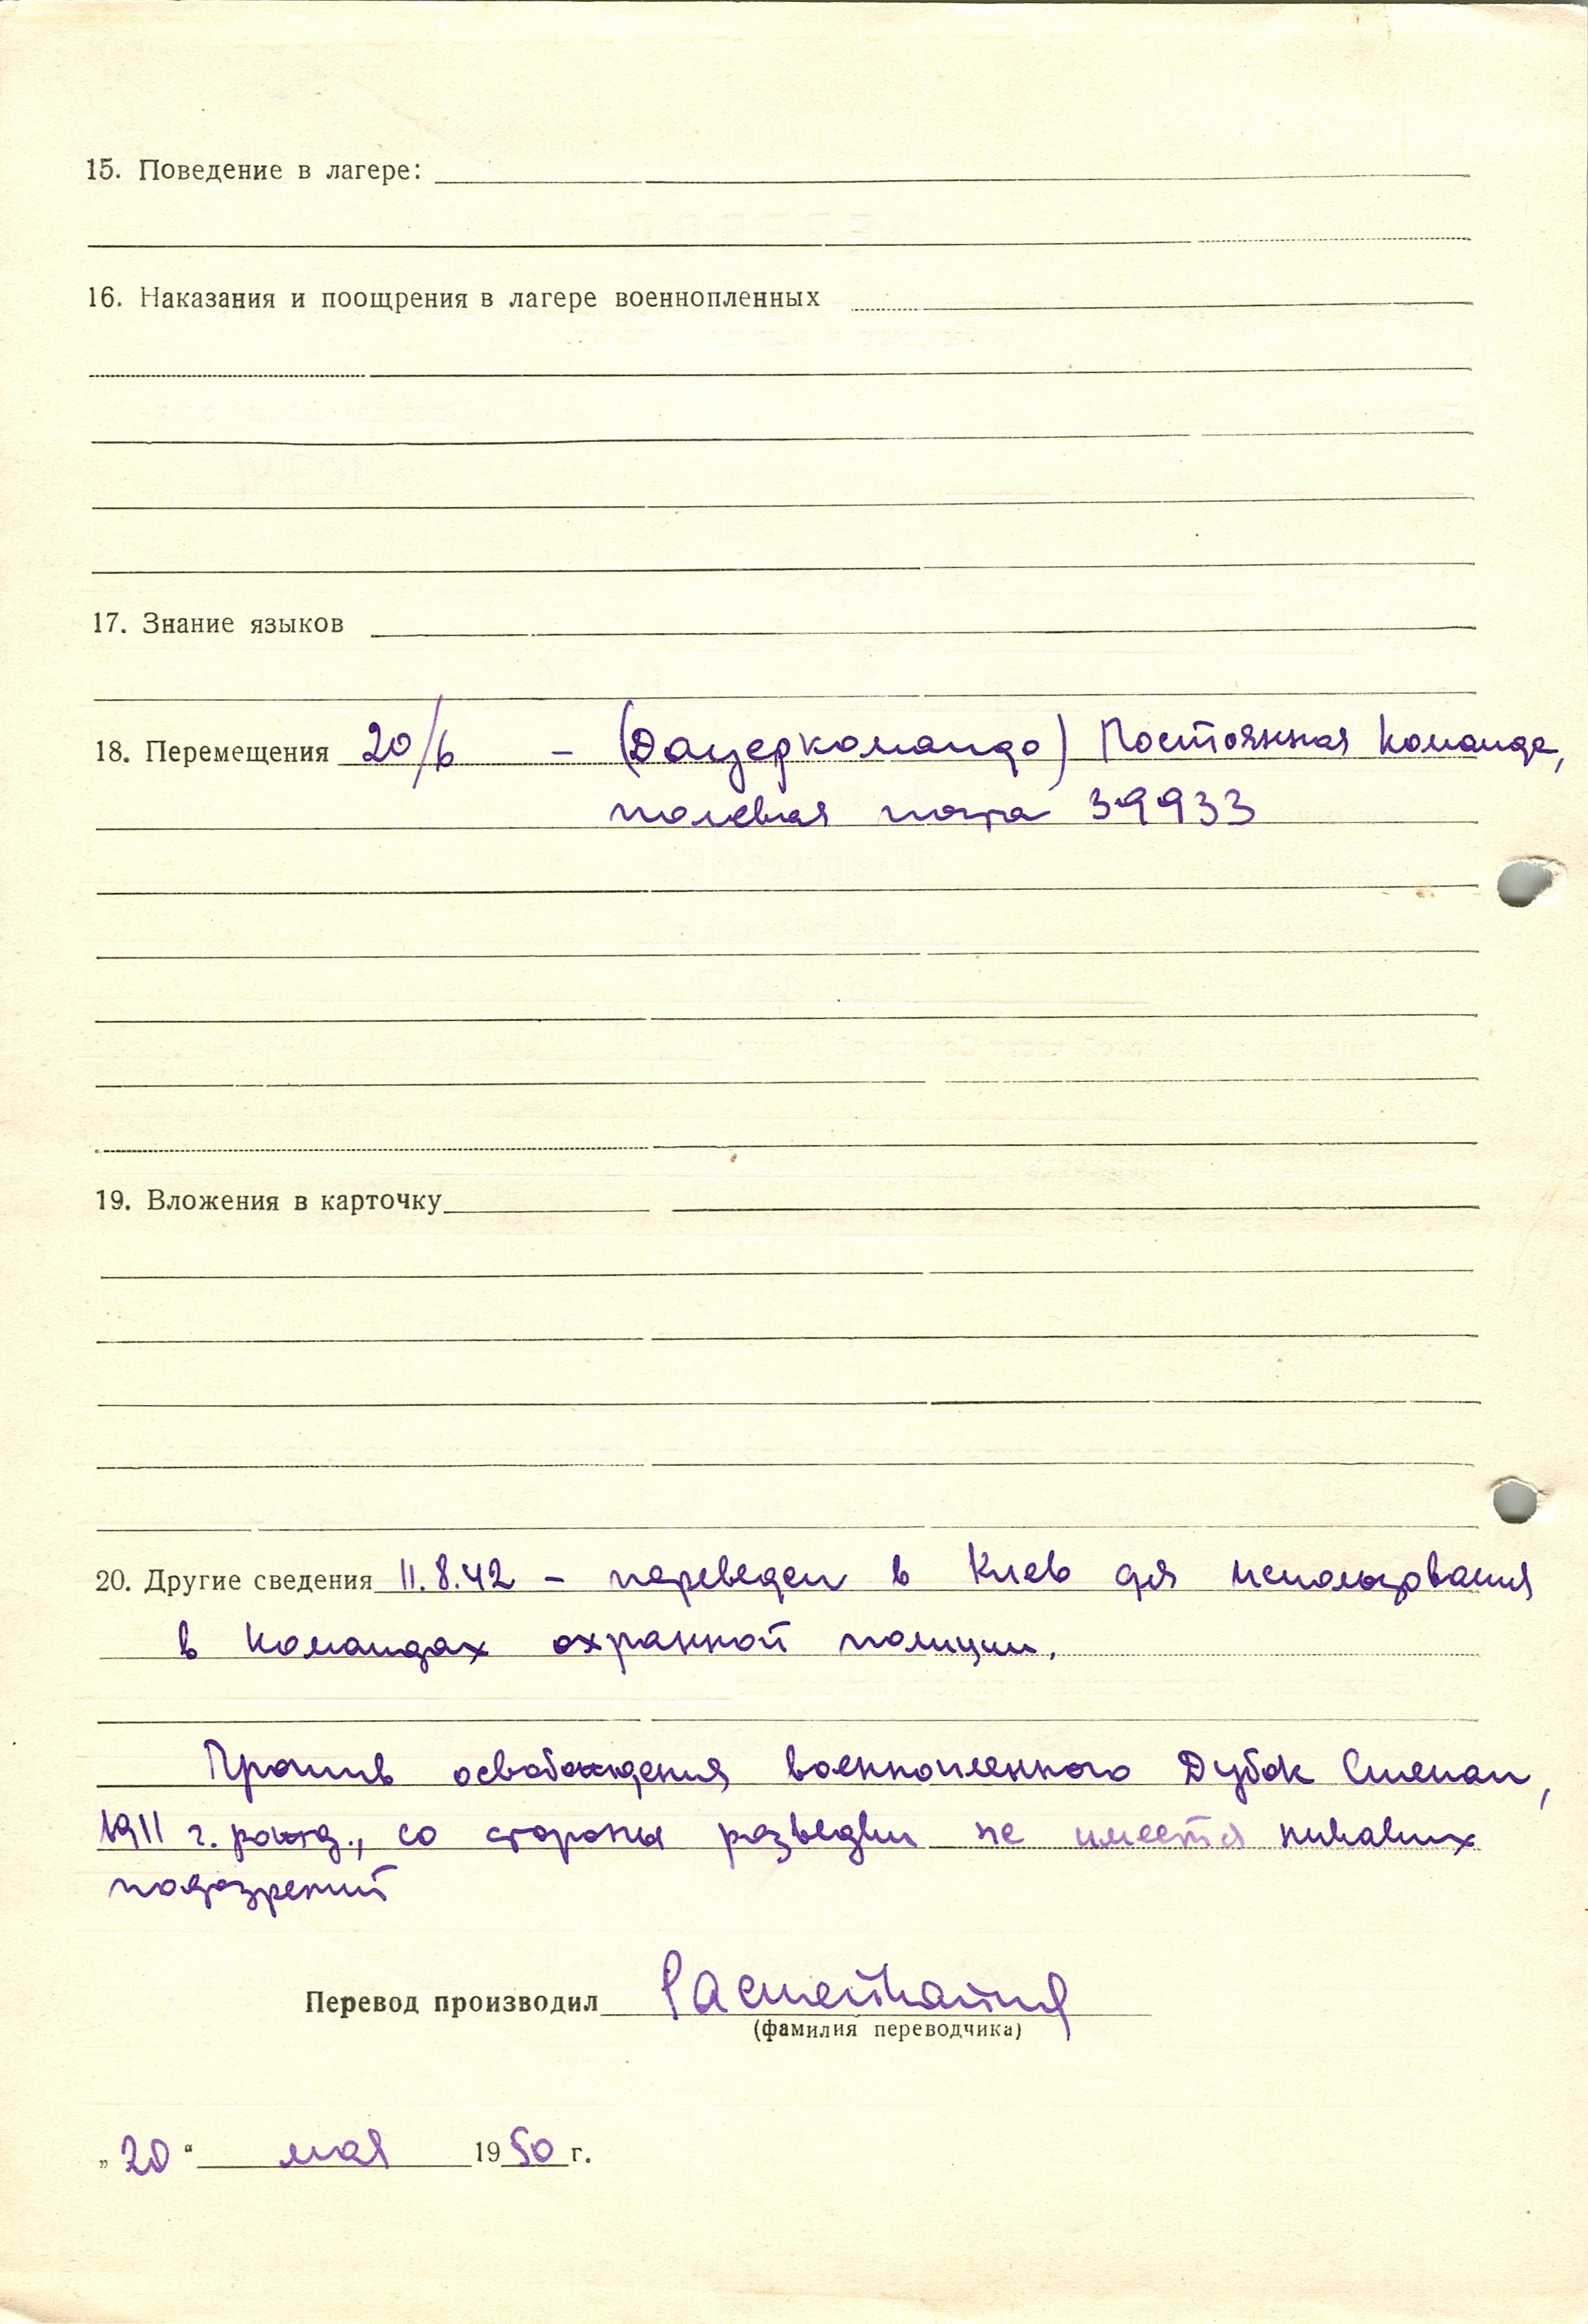 15. Поведение в лагере:
16. Наказания и поощрения в лагере военнопленных
17. Знание языков
18. Перемещения 20/6 – (Дауеркомандо) Постоянная команда,
полевая почта 39933
19. Вложения в карточку
20. Другие сведения 11.8.42 – переведен в Киев для использования
в командах охранной полиции.
Против освобождения военнопленного Дубок Степан,
1911 г. рожд., со стороны разведки не имеется никаких
подозрений
Перевод производил
(фамилия переводчика)
„20“ мая 1950 г.